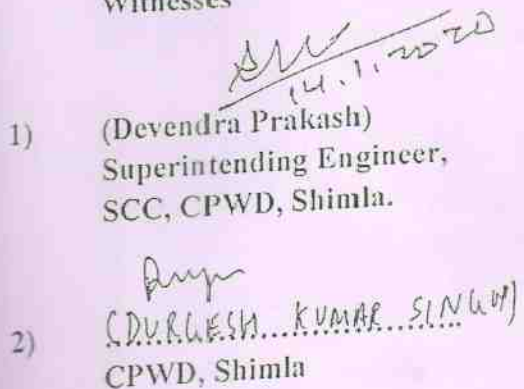 Witnesses
14.1.2020
1) (Devendra Prakash)
Superintending Engineer,
SCC, CPWD, Shimla.
2) (DURGESH KUMAR SINGH)
CPWD, Shimla